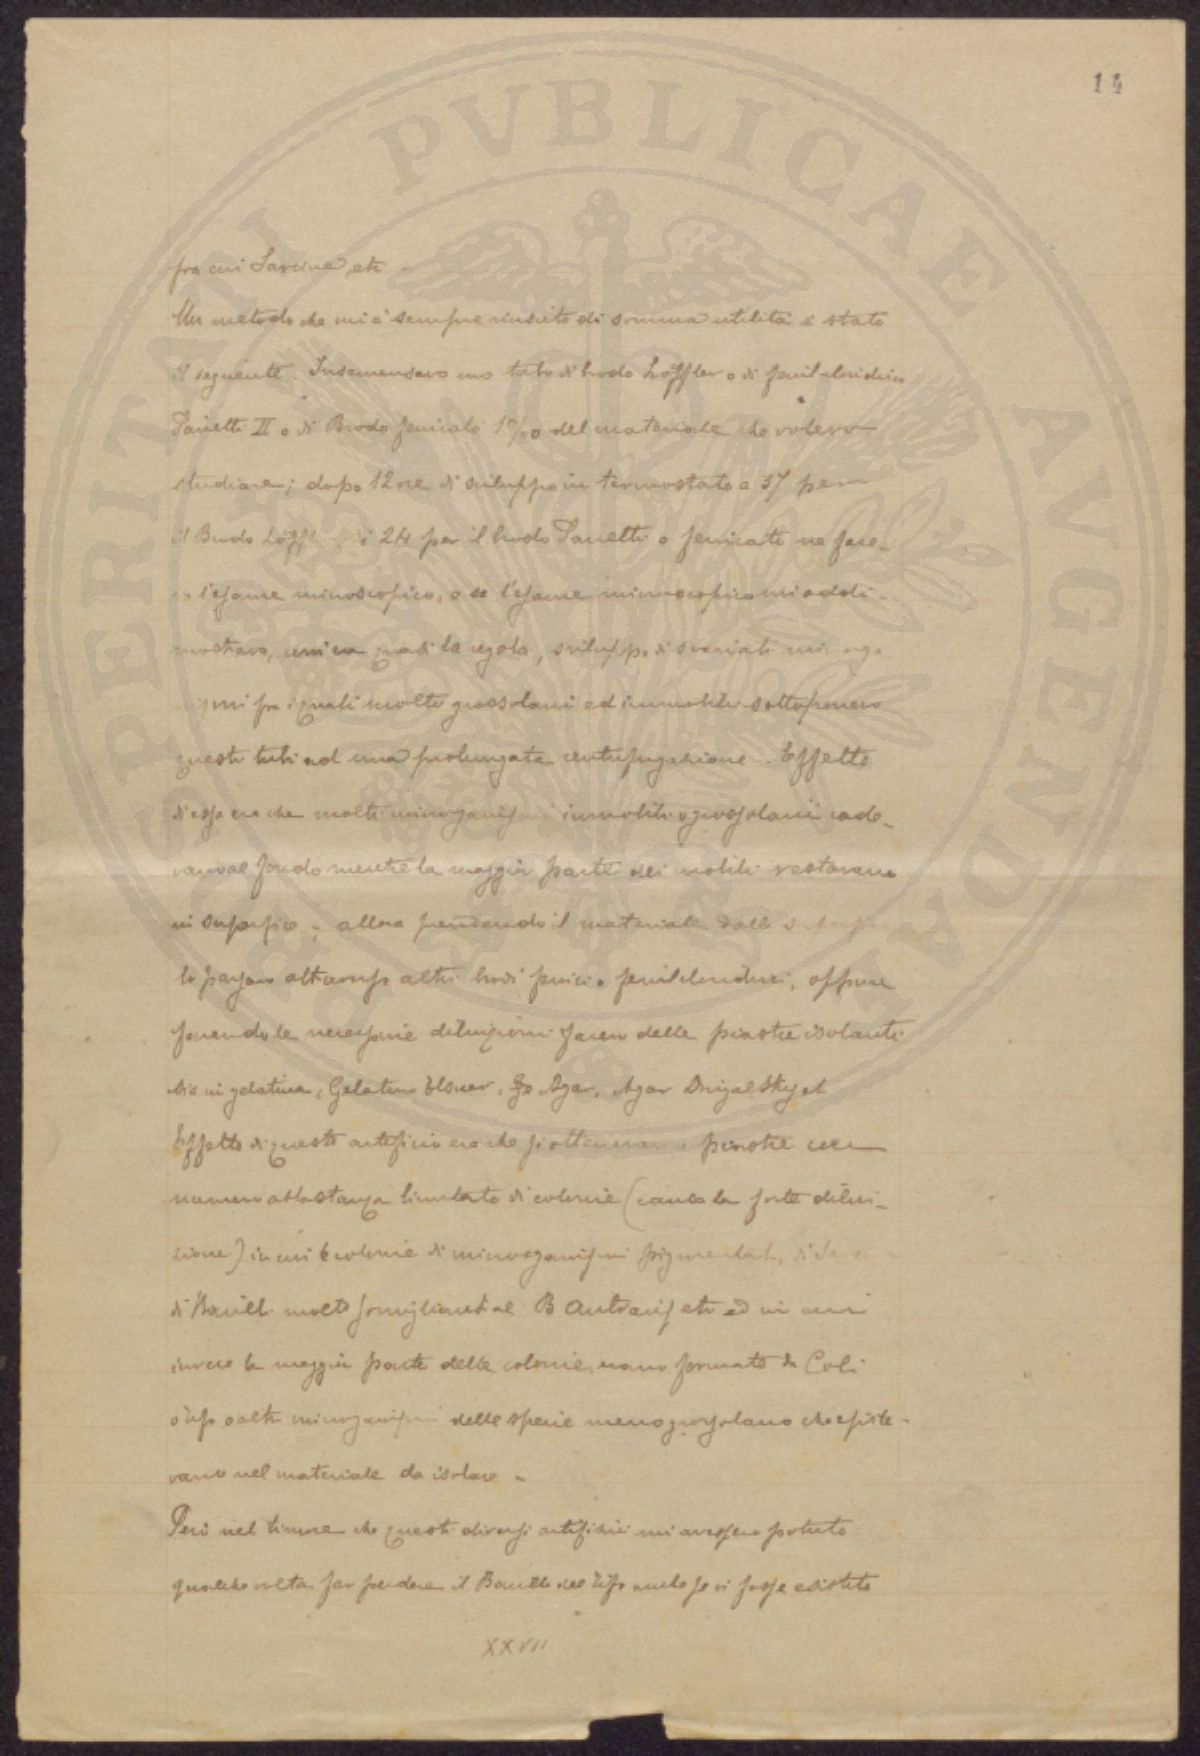 14
PROSPERITATI PVBLICAE AVGENDAE
fra cui Sarcine etc
Un metodo che mi è sempre riuscito di somma utilità è stato
il seguente. Insemensavo uno tubo di brodo Löffler o di fenil cloridrico
Panetti II o di Brodo fenicato 1‰ del materiale che volevo
studiare; dopo 12 ore di sviluppo in termostato a 37 per
il Brodo Löffler, di 24 per il brodo Panetti o fenicati ne face-
l'esame microscopico, e se l'esame microscopico mi addi-
mostrava, come era quasi la regola, sviluppo di svariati microrga
nismi fra i quali molto grossolani ed immobili sottoponevo
questi tubi ad una prolungata centrifugazione. Effetto
di esso era che molti microrganismi immobili o grossolani cade-
vano al fondo mentre la maggior parte dei mobili restavano
in superficie; allora prendendo il materiale dalla
lo passavo altri brodi fenici o fenilcloridrici, oppure
facendo le necessarie diluizioni facevo delle piastre isolanti
sia in gelatina, Gelatina Elsner, Agar, Agar Drigalsky et
Effetto di questo artificio era che si ottenevano piastre con
numero abbastanza limitato di colonie (causa la forte dilui-
zione) in cui le colonie di microrganismi pigmentati, di
di Bacilli molto somiglianti al B Antracis etc ed in cui
invece la maggior parte delle colonie erano formate da Coli
o Tifo o altri microrganismi delle specie meno grossolane che esiste-
vano nel materiale da isolare -
Però nel timore che questi diversi artifizii mi avessero potuto
qualche volta far perdere il Bacillo del Tifo anche se vi fosse esistito
XXVII